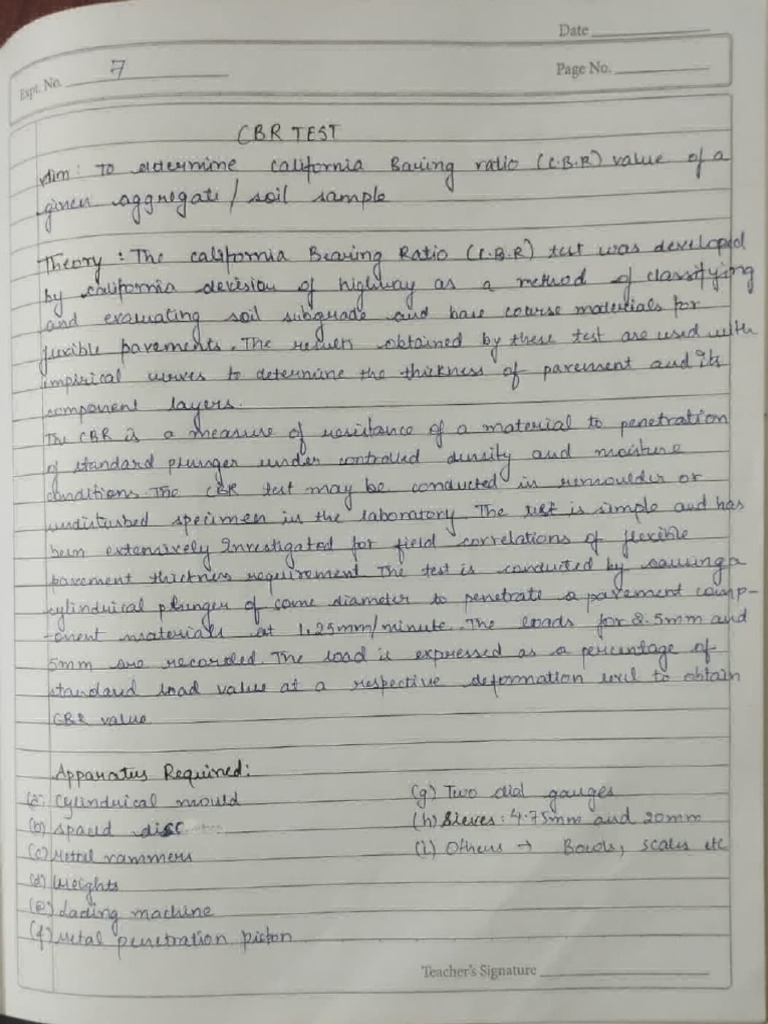 Date
Expt. No. 7
Page No.
CBR TEST
Aim : To determine california Baring ratio (C.B.R) value of a
given aggregate / soil sample
Theory : The california Bearing Ratio (C.B.R) test was developed
by california devision of highway as a method of classifying
and evaluating soil subgrade and base course materials for
flexible pavements. The results obtained by these test are used with
empirical curves to determine the thickness of pavement and its
component layers.
The CBR is a measure of resistance of a material to penetration
of standard plunger under controlled density and moisture
conditions. The CBR test may be conducted in remoulder or
undisturbed specimen in the laboratory. The test is simple and has
been extensively Investigated for field correlations of flexible
pavement thickness requirement The test is conducted by causing a
cylindrical plunger of same diameter to penetrate a pavement comp-
-onent materials at 1.25mm/minute. The loads for 2.5mm and
5mm are recorded. The load is expressed as a percentage of
standard load value at a respective deformation level to obtain
CBR value
Apparatus Required:
(a) Cylindrical mould
(g) Two dial gauges
(b) spaced disc
(h) Sieves : 4.75mm and 20mm
(c) Metal rammers
(i) Others → Bowls, scales etc
(d) Weights
(e) Lading machine
(f) Metal penetration piston
Teacher's Signature